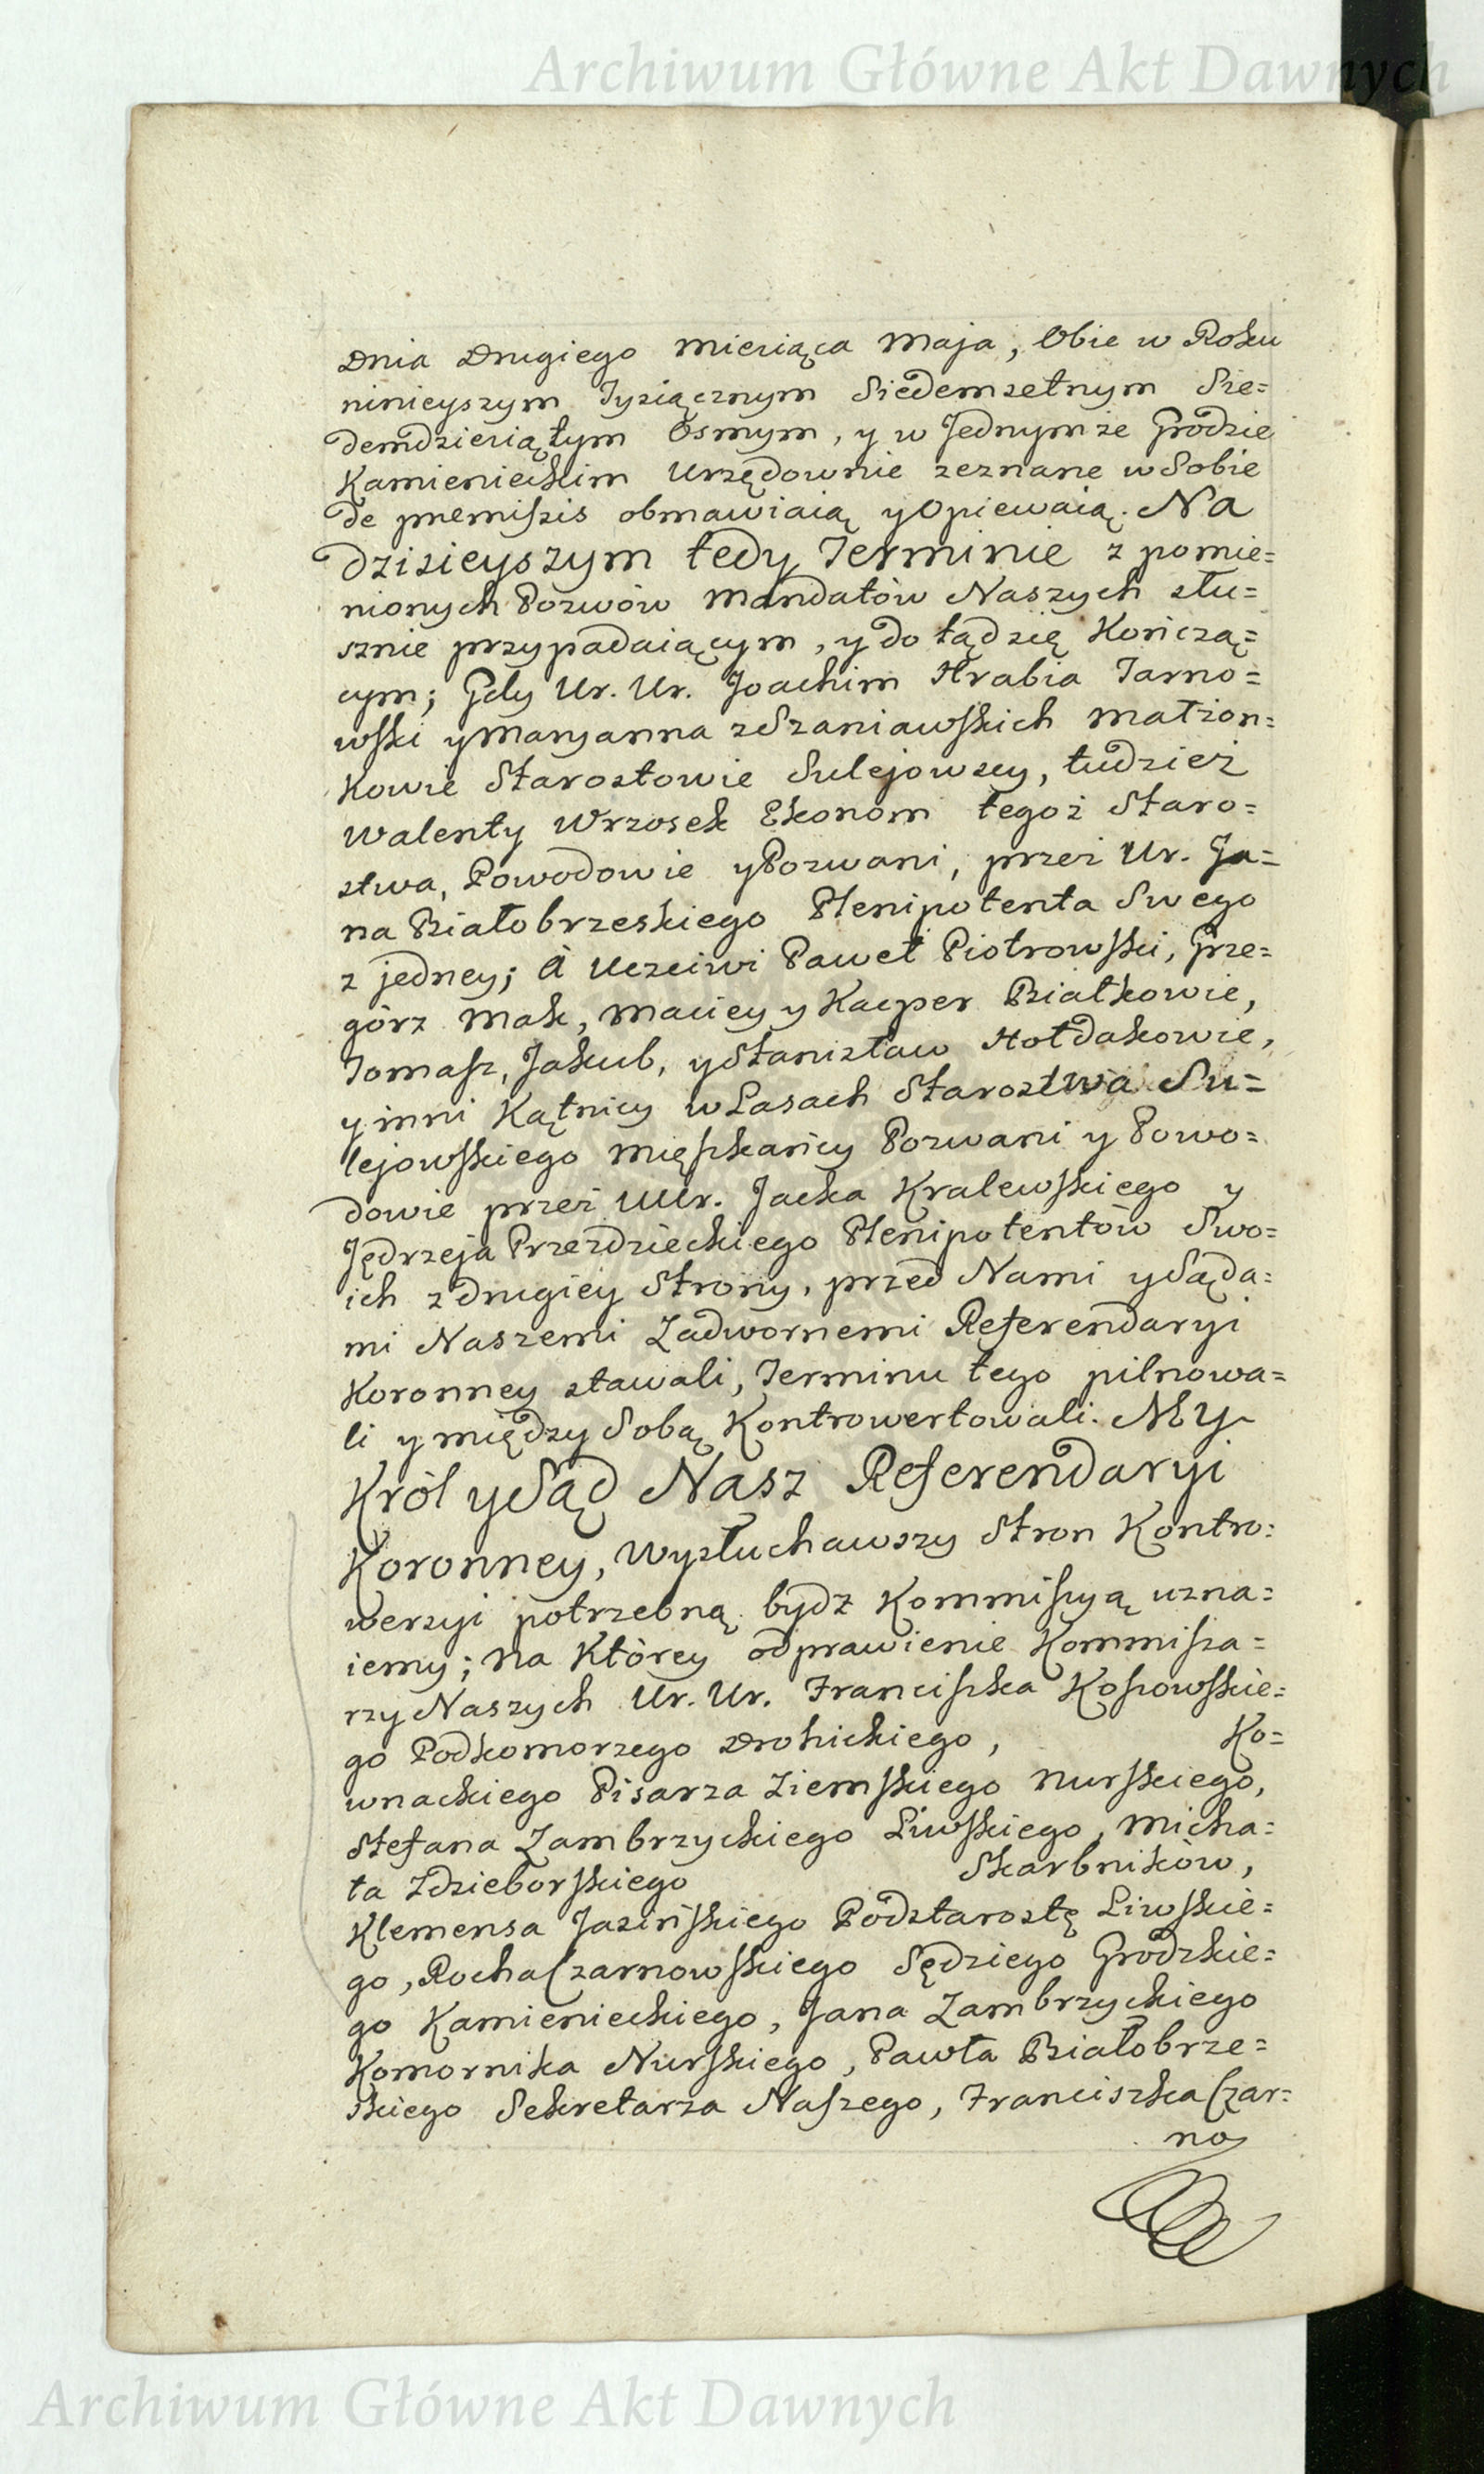 Archiwum Główne Akt Dawnych
Dnia Drugiego Miesiąca Maja, Obie w Roku
ninieyszym Tysiącznym Siedemsetnym Sie=
demdziesiątym Osmym, y w Jednymże Grodzie
Kamienieckim Urzędownie zeznane w Sobie
de premissis obmawiaią y Opiewaią. Na
dzisieyszym tedy Terminie z pomie=
nionych Pozwów Mandatów Naszych słu=
sznie przypadaiącym, y do tąd się Kończą=
cym; Gdy Ur. Ur. Joachim Hrabia Tarno=
wski y Maryanna z Szaniawskich Małżon=
Kowie Starostowie Sulejowscy, tudzież
Walenty Wrzosek Ekonom tegoż Staro=
stwa, Powodowie y Pozwani, przez Ur. Ja=
na Białobrzeskiego Plenipotenta Swego
z jedney; A Uczciwi Paweł Piotrowski, Grze=
górz Mak, Maciey y Kacper Białkowie,
Tomasz, Jakub, y Stanisław Hołdakowie,
y inni Kątnicy w Lasach Starostwa Su=
lejowskiego Mięszkańcy Pozwani y Powo=
dowie przez UUr. Jacka Kralewskiego y
Jędrzeja Przezdzieckiego Plenipotentów Swo=
ich z drugiey Strony, przed Nami y Sąda=
mi Naszemi Zadwornemi Referendaryi
Koronney stawali, Terminu tego pilnowa=
li y między Sobą Kontrowertowali. My
Król y Sąd Nasz Referendaryi
Koronney, Wysłuchawszy Stron Kontro=
wersyi potrzebną bydz Kommissyą uzna=
iemy; na Którey odprawienie Kommissa=
rzy Naszych Ur. Ur. Franciszka Kossowskie=
go Podkomorzego Drohickiego, Ko=
wnackiego Pisarza Ziemskiego Nurskiego,
Stefana Zambrzyckiego Liwskiego, Micha=
ła Zdzieborskiego Skarbników,
Klemensa Jasińskiego Podstarostę Liwskie=
go, Rocha Czarnowskiego Sędziego Grodzkie=
go Kamienieckiego, Jana Zambrzyckiego
Komornika Nurskiego, Pawła Białobrze=
skiego Sekretarza Naszego, Franciszka Czar=
no
Archiwum Główne Akt Dawnych